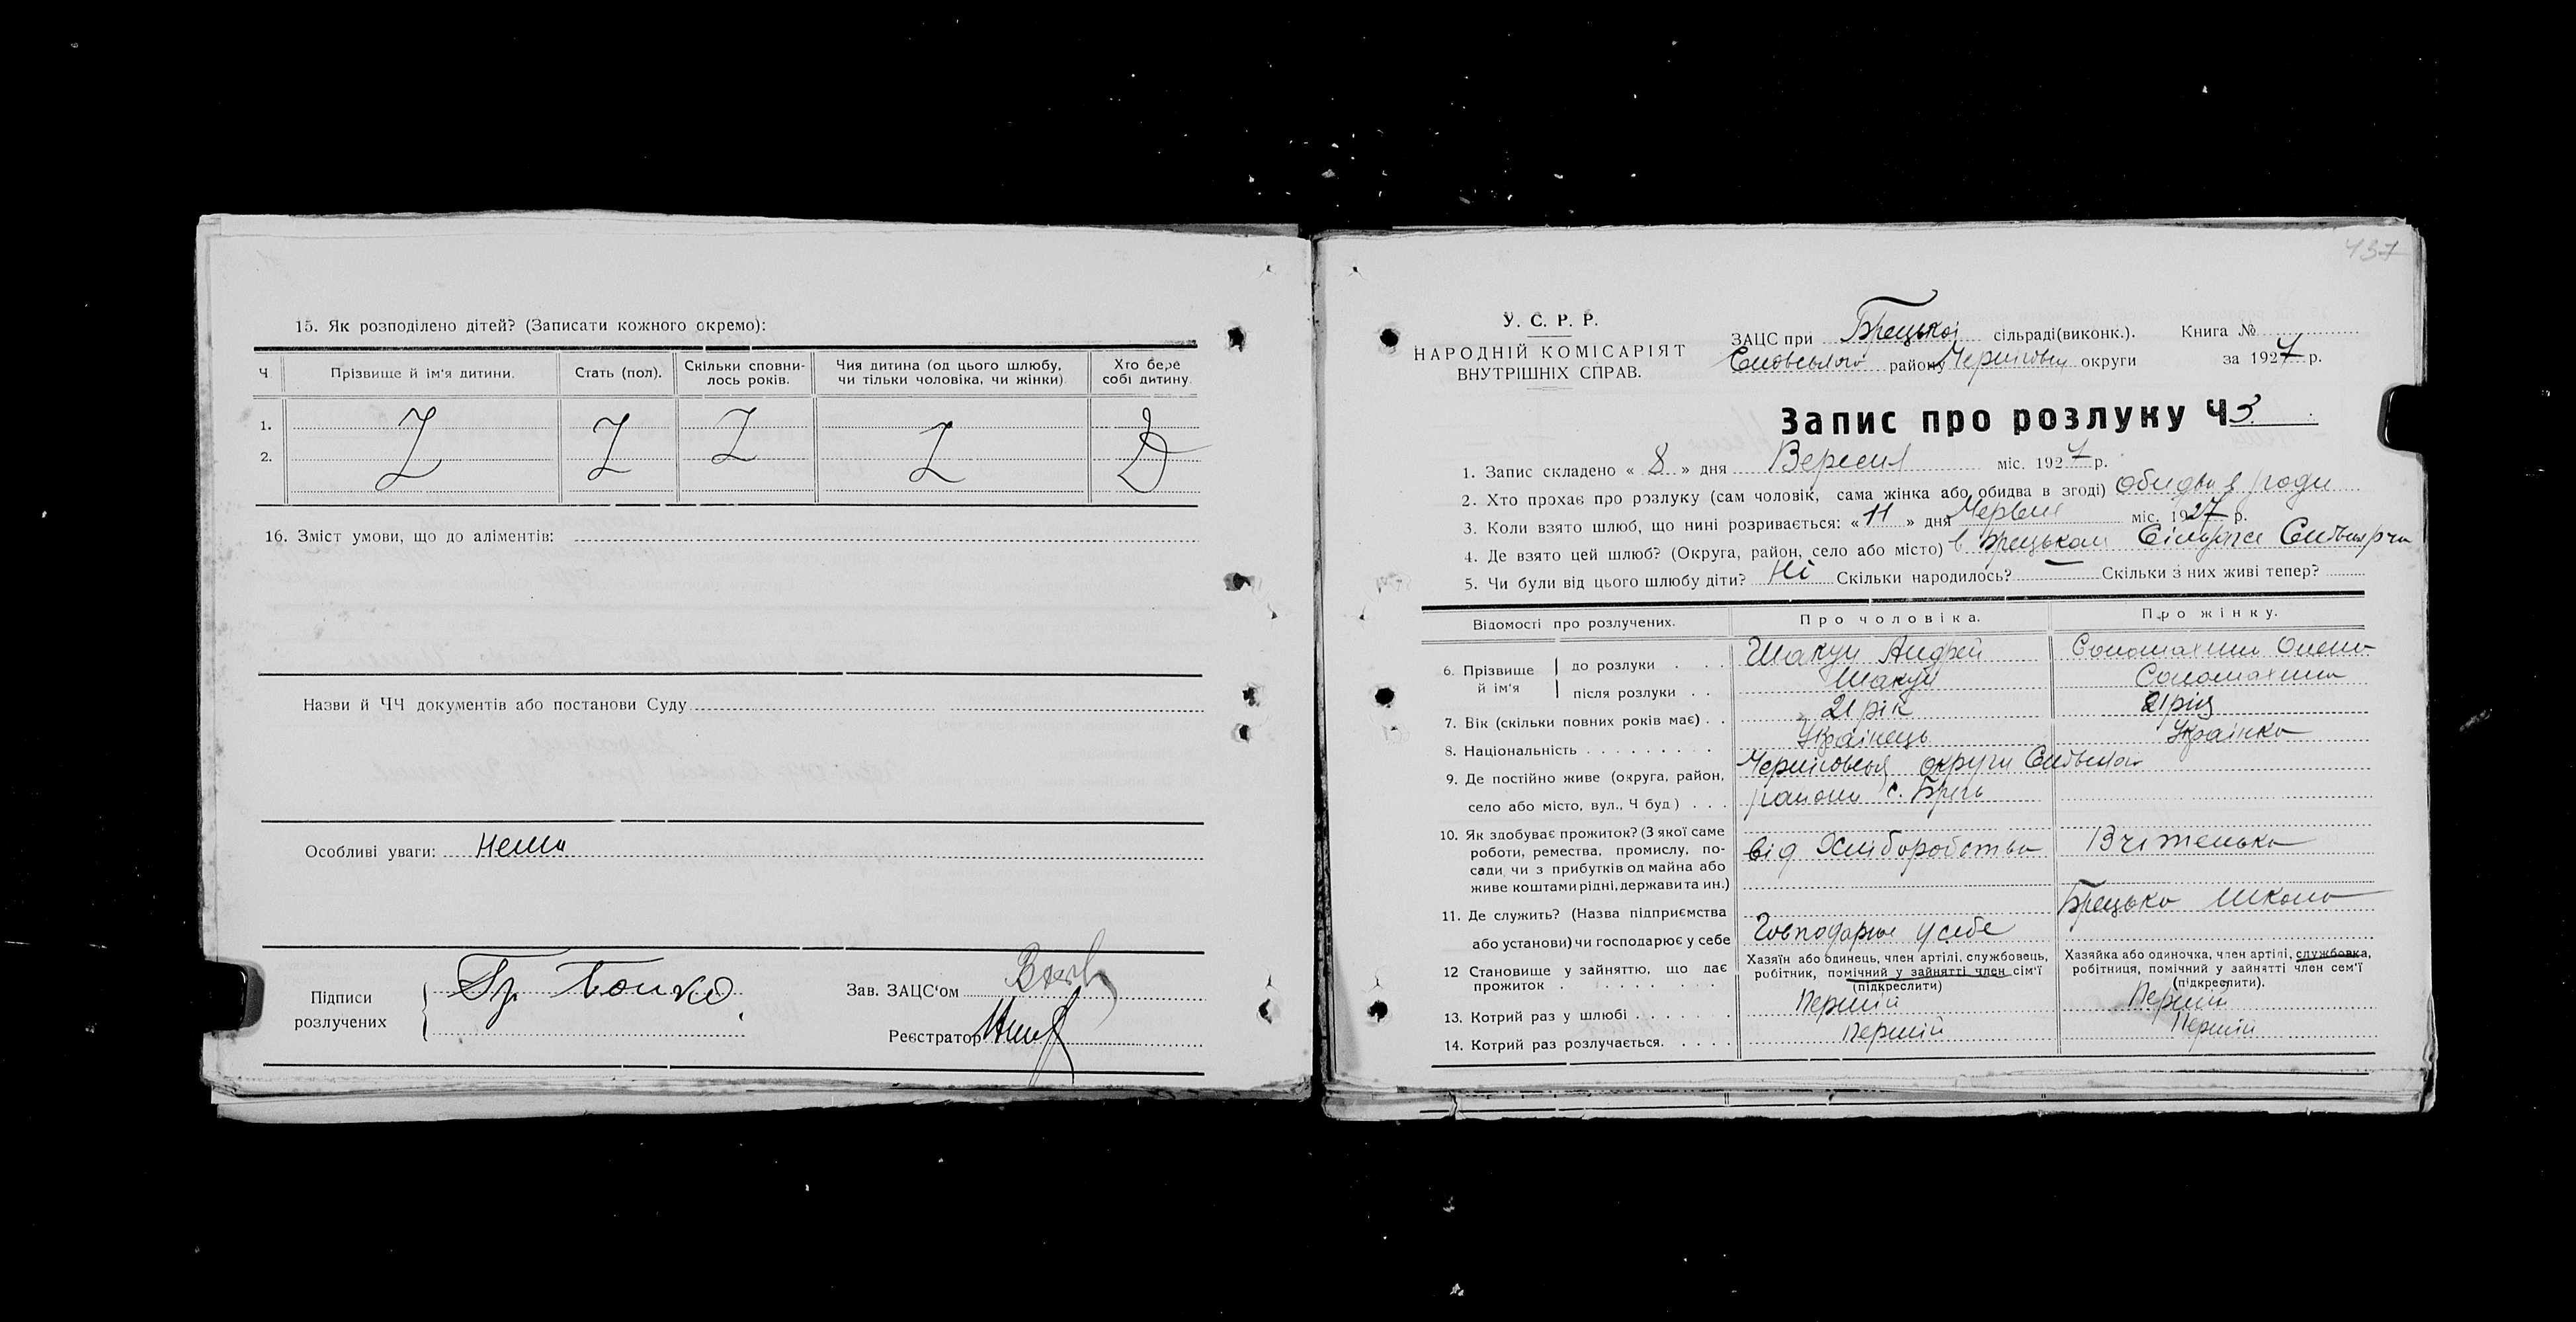 15. Як розподілено дітей? (Записати кожного окремо):
Ч. Прізвище й ім'я дитини. Стать (пол). Скільки сповни-лось років. Чия дитина (од цього шлюбу, чи тільки чоловіка, чи жінки). Хто бере собі дитину.
1. Z Z Z Z
2.
16. Зміст умови, що до аліментів:
Назви й ЧЧ документів або постанови Суду
Особливі уваги: Нема
Підписи розлучених
Гр. Бойко
Зав. ЗАЦС'ом
Реєстратор
437
У. С. Р. Р.
НАРОДНІЙ КОМІСАРІЯТ
ВНУТРІШНІХ СПРАВ.
ЗАЦС при Брецької сільраді(виконк.). Книга №
Сновського району Черніговськ округи за 1927 р.
Запис про розлуку Ч 3.
1. Запис складено « 8 » дня Вересня міс. 1927 р.
2. Хто прохає про розлуку (сам чоловік, сама жінка або обидва в згоді) обидва в згоді
3. Коли взято шлюб, що нині розривається: « 11 » дня Червня міс. 1927 р.
4. Де взято цей шлюб? (Округа, район, село або місто) в Брецьком Сільраде
5. Чи були від цього шлюбу діти? Ні Скільки народилось? — Скільки з них живі тепер?
Відомості про розлучених. Про чоловіка. Про жінку.
6. Прізвище й ім'я до розлуки Шакун Андрей Соломахина Олена
після розлуки Шакун Соломахина
7. Вік (скільки повних років має) 21 рік 21 рік
8. Національність Українець Українка
9. Де постійно живе (округа, район, Черніговська округи Сновського
село або місто, вул., Ч буд) района с. Бреч
10. Як здобуває прожиток? (З якої саме
роботи, ремества, промислу, по- від Хліборобства Вчителька
сади, чи з прибутків од майна або
живе коштами рідні, держави та ин.)
11. Де служить? (Назва підприємства Брецька Школа
або установи) чи господарює у себе Господарює у себе
12 Становище у зайняттю, що дає прожиток
Хазяїн або одинець, член артілі, службовець, робітник, помічний у зайнятті член сім'ї (підкреслити)
Хазяйка або одиночка, член артілі, службовка, робітниця, помічний у зайнятті член сем'ї (підкреслити).
13. Котрий раз у шлюбі Першій Першій
14. Котрий раз розлучається. Першій Першій